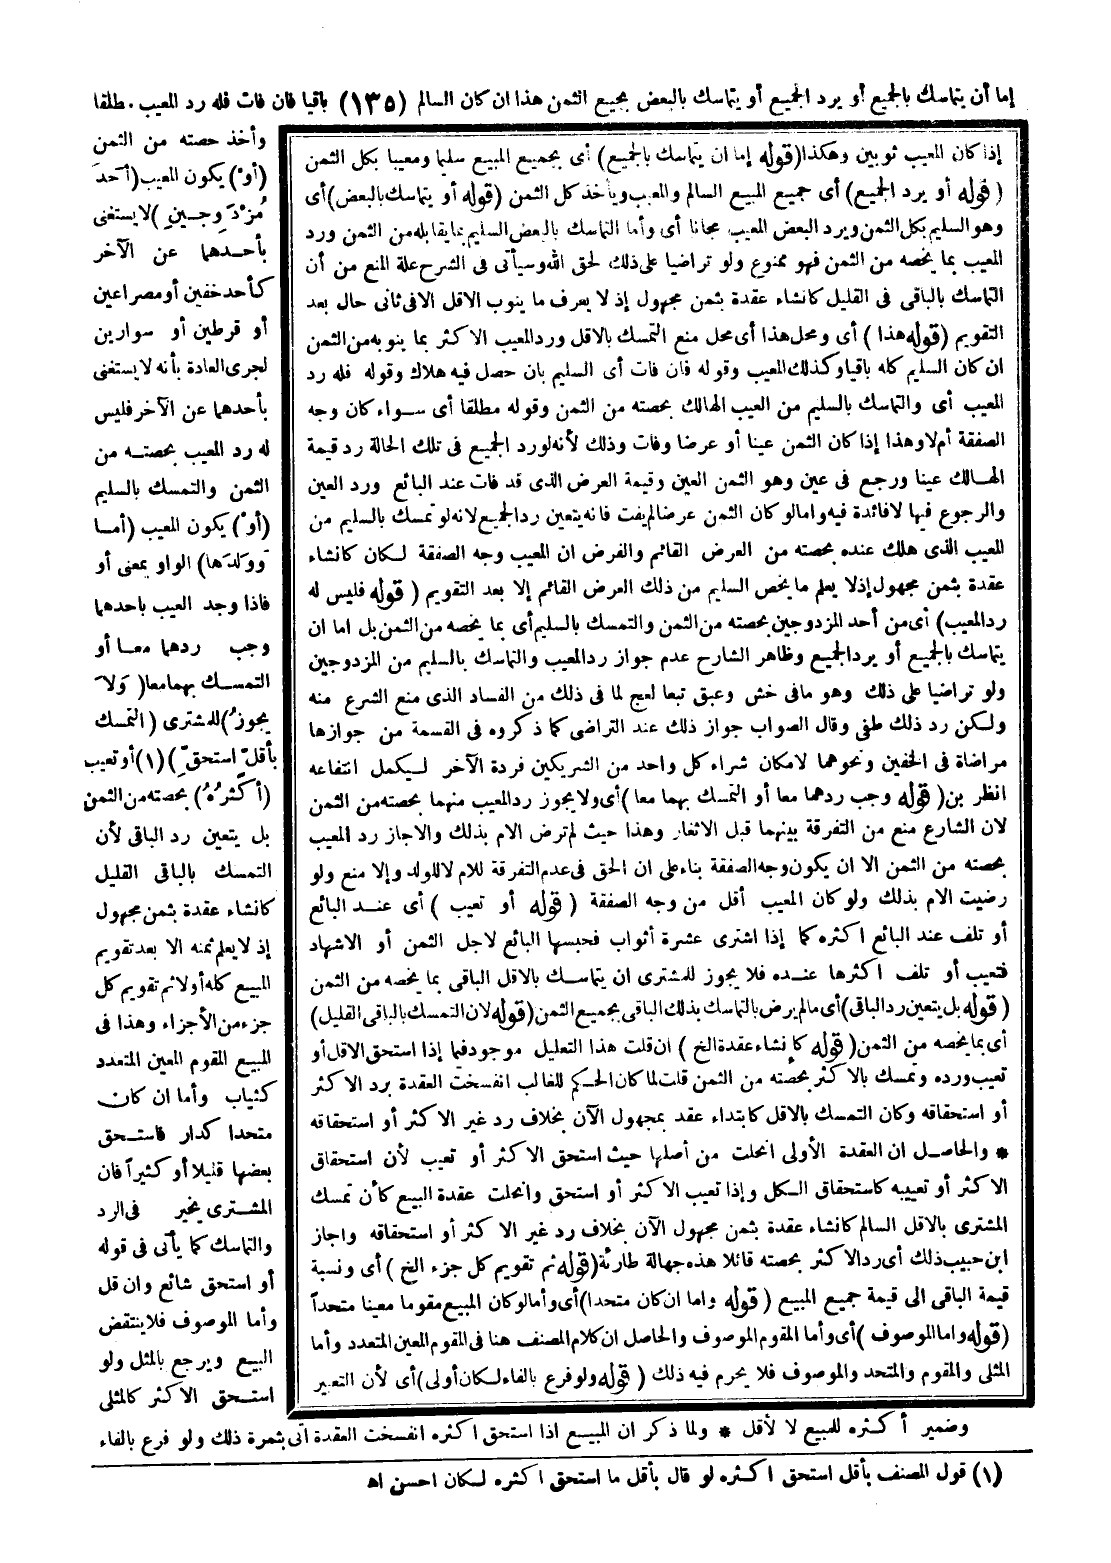 إما أن يتماسك بالجميع أو يرد الجميع أو يتماسك بالبعض بجميع الثمن هذا ان كان السالم (١٣٥) باقيا فان فات فله رد المعيب مطلقا
وأخذ حصته من الثمن
(أوْ) يكون المعيب (أحدَ
مُزْدَوجين) لا يستغنى
بأحدهما عن الآخر
كأحد خفين أو مصراعين
أو قرطين أو سوارين
لجرى العادة بأنه لا يستغنى
بأحدهما عن الآخر فليس
له رد المعيب بحصته من
الثمن والتمسك بالسليم
(أوْ) يكون المعيب (أما
وَولدَها) الواو بمعنى أو
فاذا وجد العيب باحدهما
وجب ردهما معا أو
التمسك بهما معا (وَلاَ
يجوزُ) للمشترى (التمسك
بأقلّ استحقّ) (١) أو تعيب
(أكثرُهُ) بحصته من الثمن
بل يتعين رد الباقى لأن
التمسك بالباقى القليل
كانشاء عقدة بثمن مجهول
إذ لا يعلم ثمنه الا بعد تقويم
المبيع كله أولا ثم تقويم كل
جزء من الأجزاء وهذا فى
المبيع المقوم المعين المتعدد
كثياب وأما ان كان
متحدا كدار فاستحق
بعضها قليلا أو كثيراً فان
المشترى يخير فى الرد
والتماسك كما يأتى فى قوله
أو استحق شائع وان قل
وأما الموصوف فلا ينتقض
البيع ويرجع بالمثل ولو
استحق الاكثر كالمثلى
إذا كان المعيب ثوبين وهكذا (قوله إما ان يتماسك بالجميع) أى بجميع المبيع سليما ومعيبا بكل الثمن
(قوله أو يرد الجميع) أى جميع المبيع السالم والمعيب ويأخذ كل الثمن (قوله أو يتماسك بالبعض) أى
وهو السليم بكل الثمن ويرد البعض المعيب مجانا أى وأما التماسك بالبعض السليم بما يقابله من الثمن ورد
المعيب بما يخصه من الثمن فهو ممنوع ولو تراضيا على ذلك لحق الله وسيأتى فى الشرح علة المنع من أن
التماسك بالباقى فى القليل كانشاء عقدة بثمن مجهول إذ لا يعرف ما ينوب الاقل الا فى ثانى حال بعد
التقويم (قوله هذا) أى ومحل هذا أى محل منع التمسك بالاقل ورد المعيب الاكثر بما ينوبه من الثمن
ان كان السليم كله باقيا وكذلك المعيب وقوله فان فات أى السليم بان حصل فيه هلاك وقوله فله رد
المعيب أى والتماسك بالسليم من العيب الهالك بحصته من الثمن وقوله مطلقا أى سواء كان وجه
الصفقة أم لا وهذا إذا كان الثمن عينا أو عرضا وفات وذلك لأنه لو رد الجميع فى تلك الحالة رد قيمة
الهالك عينا ورجع فى عين وهو الثمن العين وقيمة العرض الذى قد فات عند البائع ورد العين
والرجوع فيها لا فائدة فيه واما لو كان الثمن عرضا لم يفت فانه يتعين رد الجميع لانه لو تمسك بالسليم من
المعيب الذى هلك عنده بحصته من العرض القائم والفرض ان المعيب وجه الصفقة لكان كانشاء
عقدة بثمن مجهول إذ لا يعلم ما يخص السليم من ذلك العرض القائم إلا بعد التقويم (قوله فليس له
رد المعيب) أى من أحد المزدوجين بحصته من الثمن والتمسك بالسليم أى بما يخصه من الثمن بل اما ان
يتماسك بالجميع أو يرد الجميع وظاهر الشارح عدم جواز رد المعيب والتماسك بالسليم من المزدوجين
ولو تراضيا على ذلك وهو ما فى خش وعبق تبعا لعج لما فى ذلك من الفساد الذى منع الشرع منه
ولكن رد ذلك طفى وقال الصواب جواز ذلك عند التراضى كما ذكروه فى القسمة من جوازها
مراضاة فى الخفين ونحوهما لامكان شراء كل واحد من الشريكين فردة الآخر ليكمل انتفاعه
انظر بن (قوله وجب ردهما معا أو التمسك بهما معا) أى ولا يجوز رد المعيب منهما بحصته من الثمن
لان الشارع منع من التفرقة بينهما قبل الاثغار وهذا حيث لم ترض الام بذلك والا جاز رد المعيب
بحصته من الثمن الا ان يكون وجه الصفقة بناء على ان الحق فى عدم التفرقة للام لا للولد وإلا منع ولو
رضيت الام بذلك ولو كان المعيب أقل من وجه الصفقة (قوله أو تعيب) أى عند البائع
أو تلف عند البائع اكثره كما إذا اشترى عشرة أثواب فحبسها البائع لاجل الثمن أو الاشهاد
فتعيب أو تلف اكثرها عنده فلا يجوز للمشترى ان يتماسك بالاقل الباقى بما يخصه من الثمن
(قوله بل يتعين رد الباقى) أى ما لم يرض بالتماسك بذلك الباقى بجميع الثمن (قوله لان التمسك بالباقى القليل)
أى بما يخصه من الثمن (قوله كانشاء عقدة الخ) ان قلت هذا التعليل موجود فيما إذا استحق الاقل أو
تعيب ورده وتمسك بالاكثر بحصته من الثمن قلت لما كان الحكم للغالب انفسخت العقدة برد الاكثر
أو استحقاقه وكان التمسك بالاقل كابتداء عقد بمجهول الآن بخلاف رد غير الاكثر أو استحقاقه
* والحاصل ان العقدة الأولى انحلت من أصلها حيث استحق الاكثر أو تعيب لأن استحقاق
الاكثر أو تعييبه كاستحقاق الكل وإذا تعيب الاكثر أو استحق وانحلت عقدة البيع كأن تمسك
المشترى بالاقل السالم كانشاء عقدة بثمن مجهول الآن بخلاف رد غير الاكثر أو استحقاقه واجاز
ابن حبيب ذلك أى رد الاكثر بحصته قائلا هذه جهالة طارئة (قوله ثم تقويم كل جزء الخ) أى ونسبة
قيمة الباقى الى قيمة جميع المبيع (قوله واما ان كان متحدا) أى وأما لو كان المبيع مقوما معينا متحداً
(قوله واما الموصوف) أى وأما المقوم الموصوف والحاصل ان كلام المصنف هنا فى المقوم المعين المتعدد وأما
المثلى والمقوم والمتحد والموصوف فلا يحرم فيه ذلك (قوله ولو فرع بالفاء لكان أولى) أى لأن التعبير
وضمير أكثره للمبيع لا لأقل * ولما ذكر ان المبيع اذا استحق اكثره انفسخت العقدة أتى بثمرة ذلك ولو فرع بالفاء
(١) قول المصنف بأقل استحق اكثره لو قال بأقل ما استحق اكثره لكان احسن اه